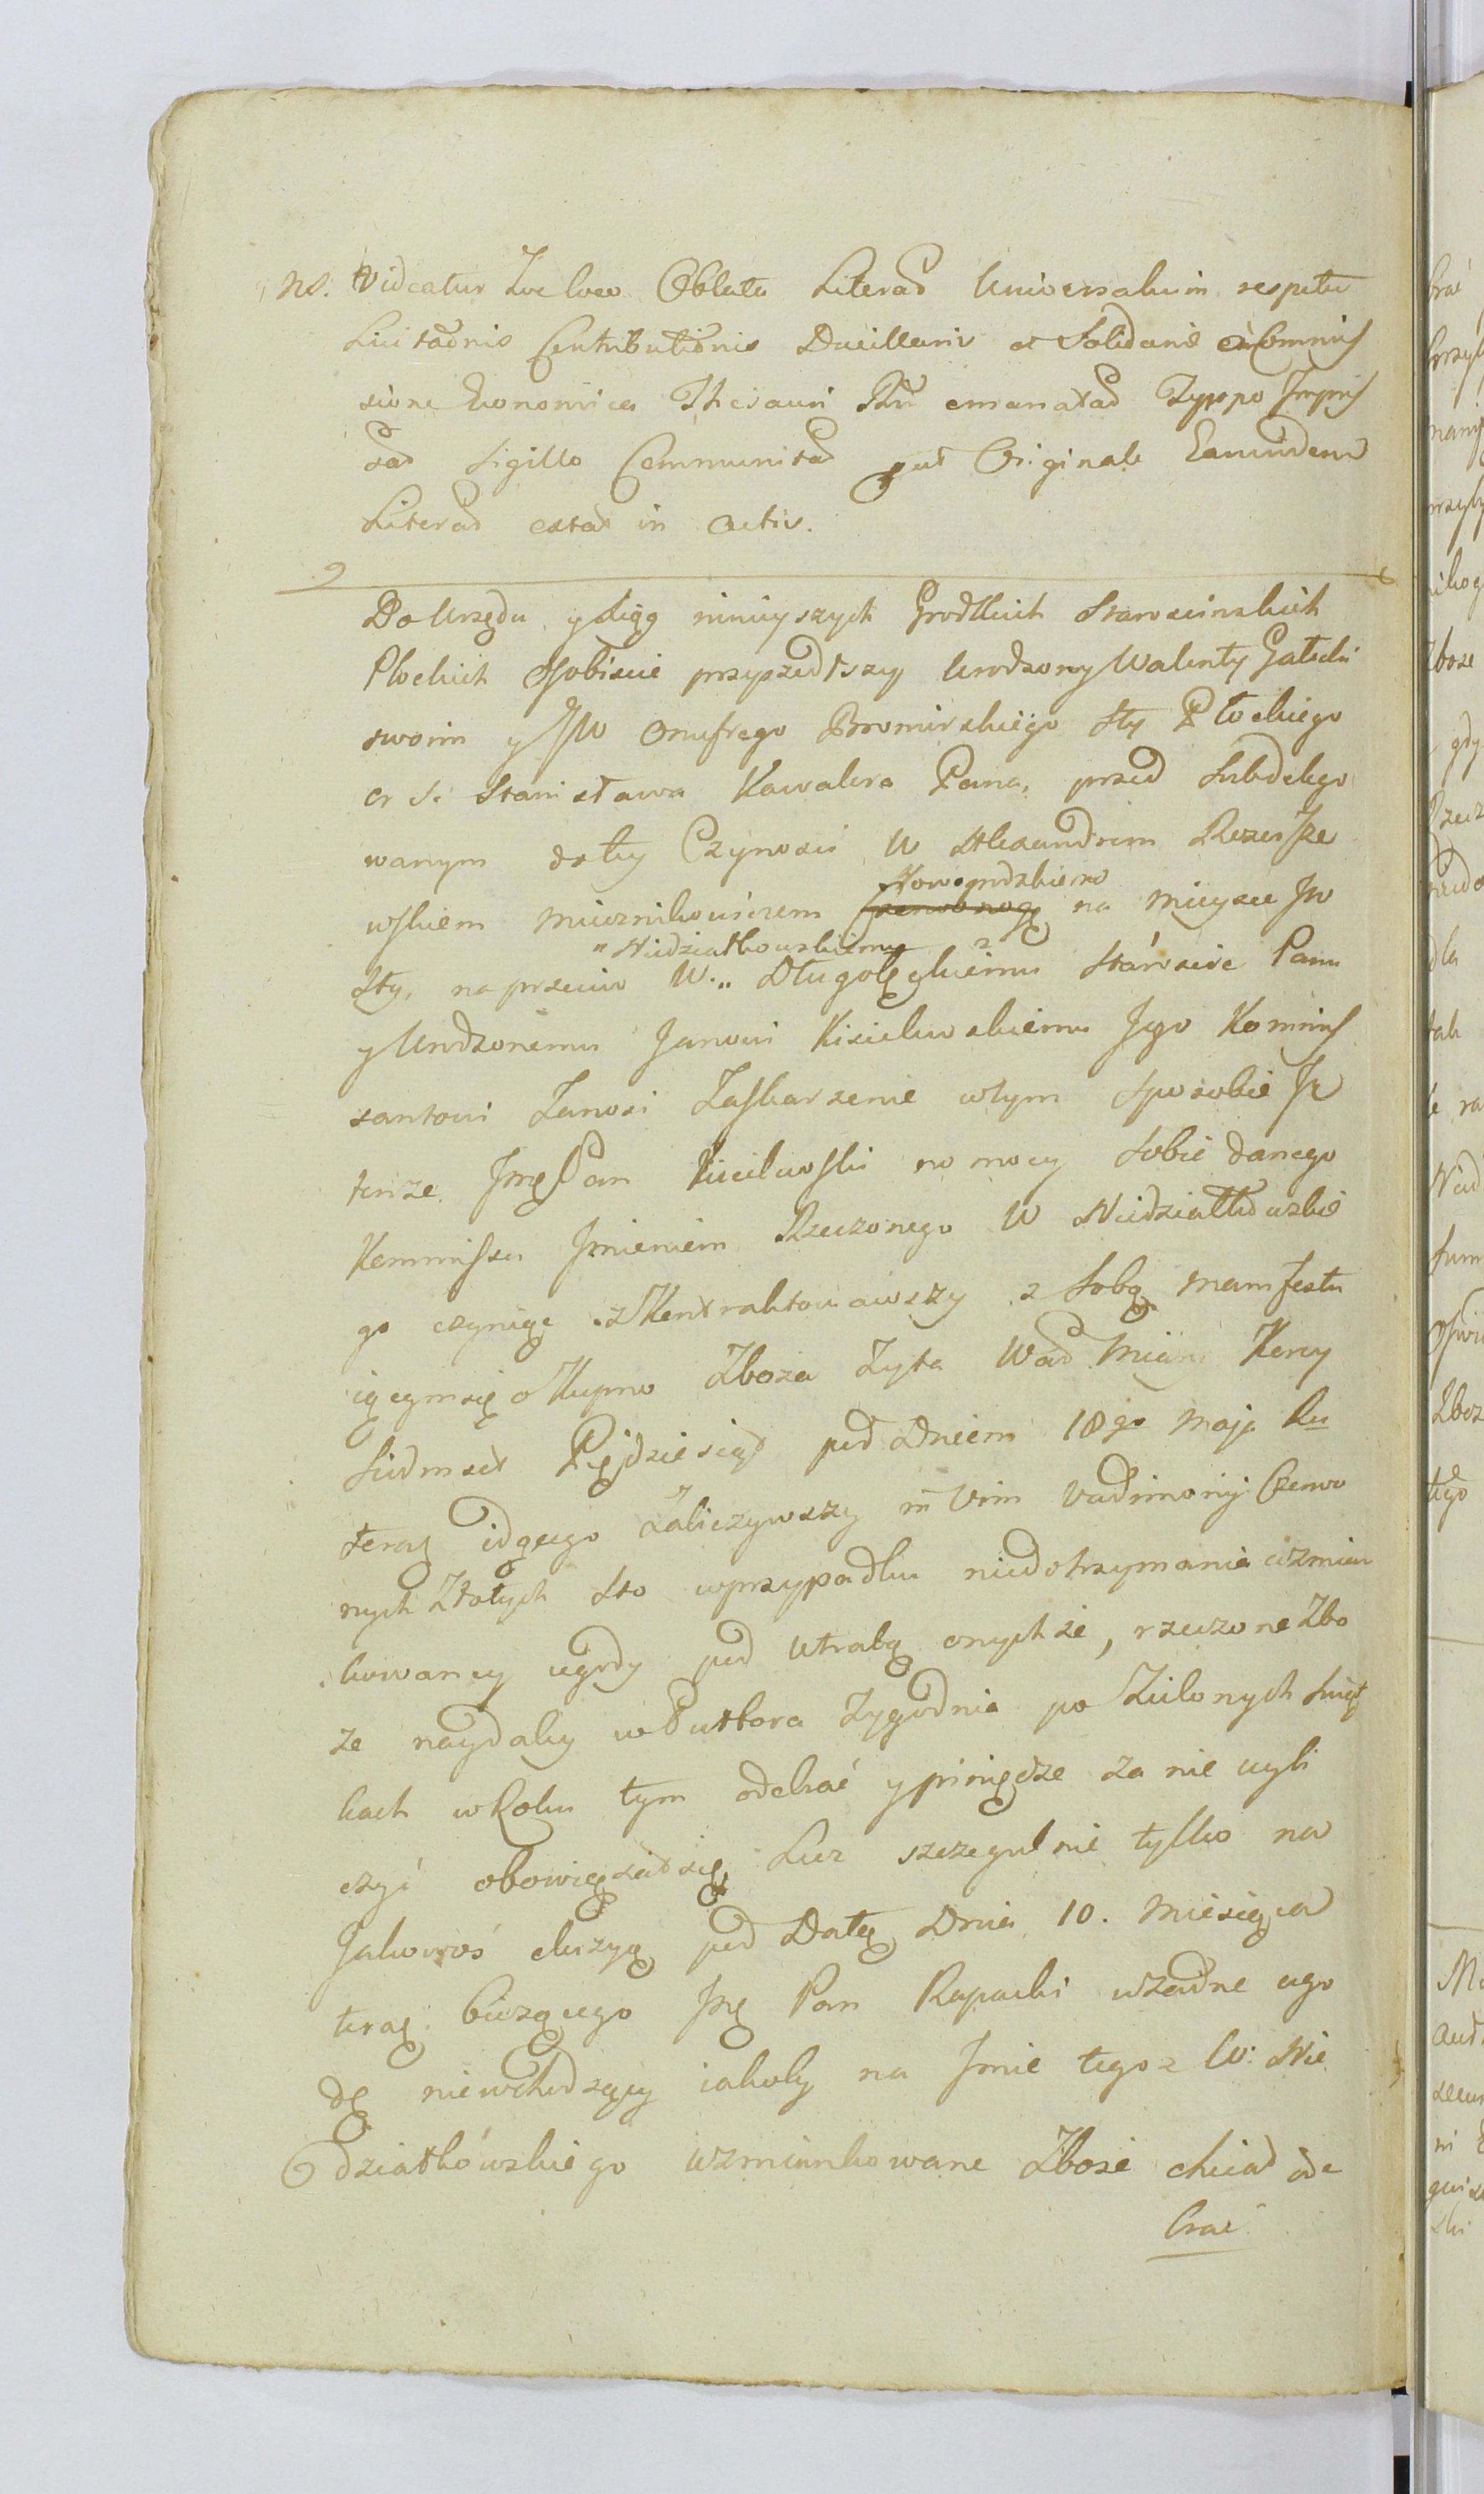 NB. Videatur hoc loco Oblata Literaꝝ Universalium respectu
Licitaõnis Contributiõnis Ducillaris et Solidaris ex Commis
sione Economica Thesauri Rni emanataꝝ Typpo Impres
saꝝ Sigillo Communitaꝝ put Originale Earundem
Literaꝝ extat in Actis.
Do Urzędu y Xiąg ninieyszych Grodkich Starościnskich
Płockich Osobiscie przyszedłszy Urodzony Walenty Gałecki
swoim y JW Onufrego Bromirskiego Sty Płockiego
Or S. Stanisława Kawalera Pana, przed Subdelego
wanym do tey Czynosci W Alexandrem Rzeszo
wskiem Miecznikowiczem Czerwonogr Nowogrodzkiem na mieyscu JW
Sty, na przeciw W. „ Niedziałkowskiemu „ Długołęckiemu Staroscie Panu
y Urodzonemu Janowi Kisielewskiemu Jego Kommis
santowi Zanosi Zaskarzenie wtym Sposobie Iż
tenże Jmę Pan Kisielewski na mocy Sobie danego
Kommissu Jmieniem Rzeczonego W Niedziałkowskie
go czyniąc zkontraktowawszy z Sobą manifestu
iącym się o Kupno Zboza Zyta Wad Miary Korcy
Siedmset Pięjdziesiąt pod Dniem 18go Maja Ru
teraz idącego Zaliczywszy in Vim Vadimonij Czerwo
nych Złotych Sto wprzypadku niedotrzymania wzmian
kowaney ugody pod utratą onychże, rzeczone Zbo
ze naydaley w Pułtora Tygodnia po Zielonych Swiąt
kach w Roku tym odebrać y pieniądze za nie wyli
czyć obowiązał się Lecz szczegulnie tylko na
Jakowoś decyzyą pod Datą Dnia 10. Miesiąca
teraz biezącego Jmę Pan Rapacki wzadne ugo
dę niewchodzący iakoby na Jmie tegoz W. Nie
działkówskiego wzmiankowane Zboże chciał ode
brać